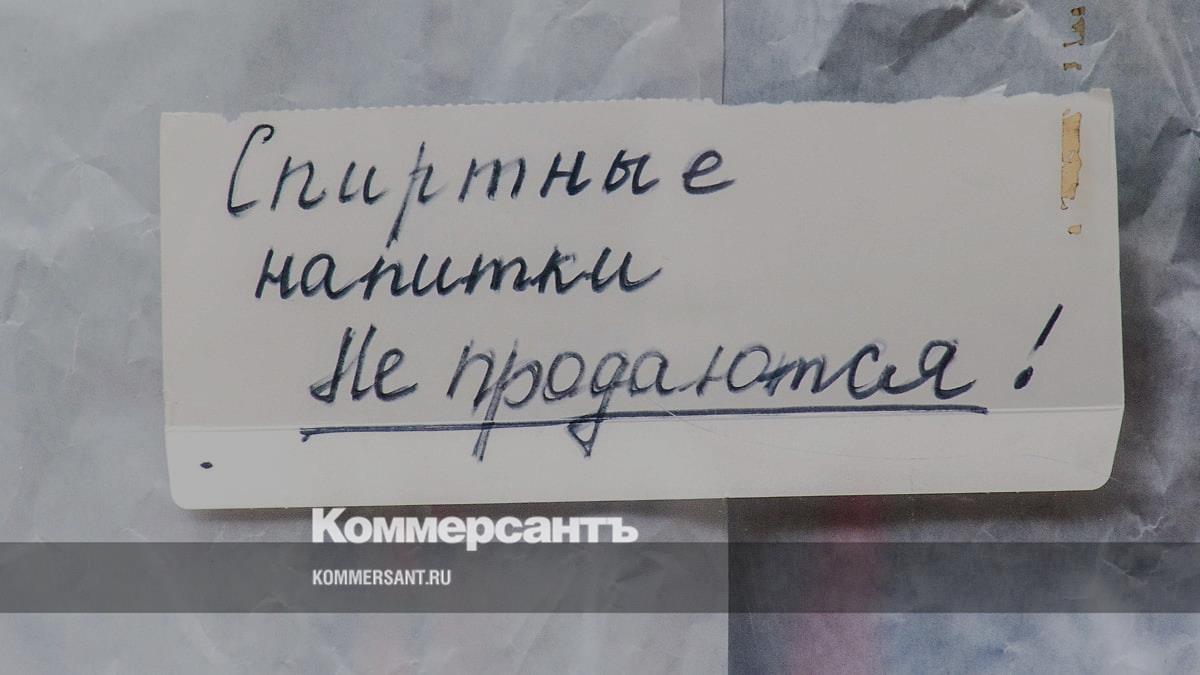 Спиртные
напитки
Не продаются!
Коммерсантъ
KOMMERSANT.RU